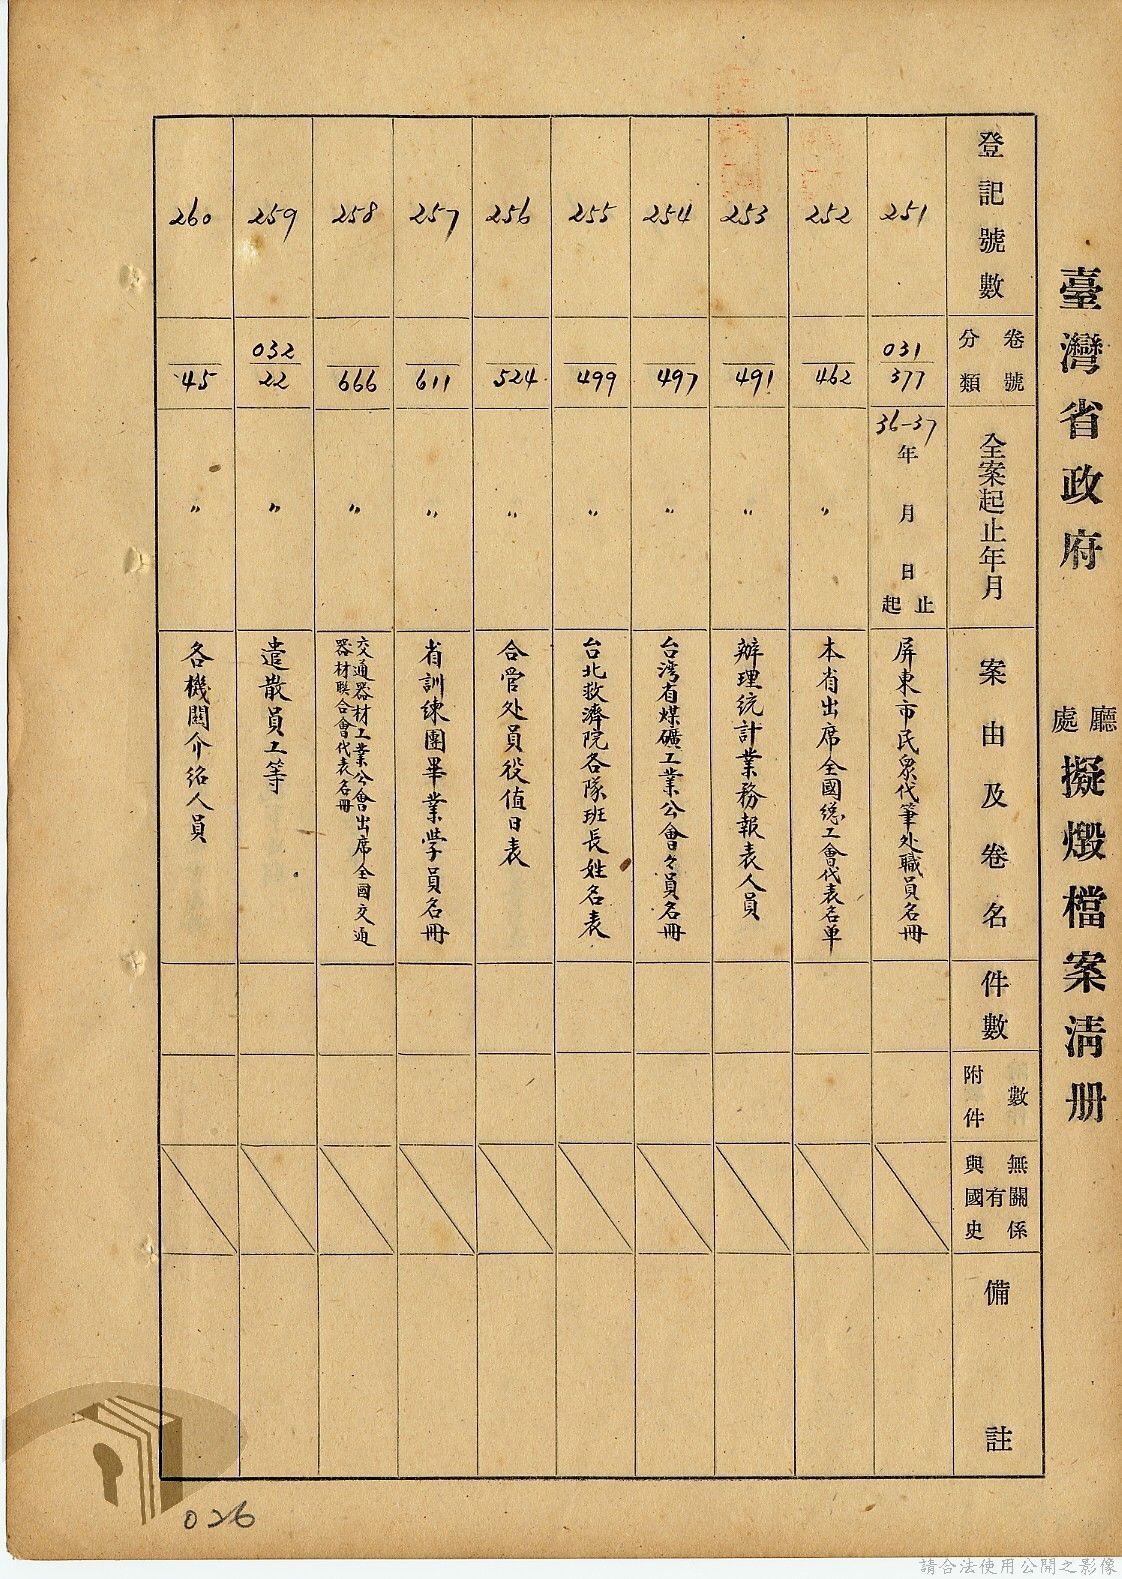 臺灣省政府 廳處 擬燬檔案清册
登記號數
卷號
分類
全案起止年月
案由及卷名
件數
附件數
與國史有無關係
備註
251
031
377
36-37
年 月 日
起止
屏東市民衆代筆处職員名冊
252
462
〃
本省出席全國總工會代表名单
253
491
〃
辦理統計業務報表人員
254
497
〃
台湾省煤礦工業公會々員名冊
255
499
〃
台北救濟院各隊班長姓名表
256
524
〃
合管处員役值日表
257
611
〃
省訓練團畢業学員名冊
258
666
〃
交通器材工業公會出席全國交通
器材联合會代表名冊
259
032
22
〃
遣散員工等
260
45
〃
各機関介绍人員
026
請合法使用公開之影像